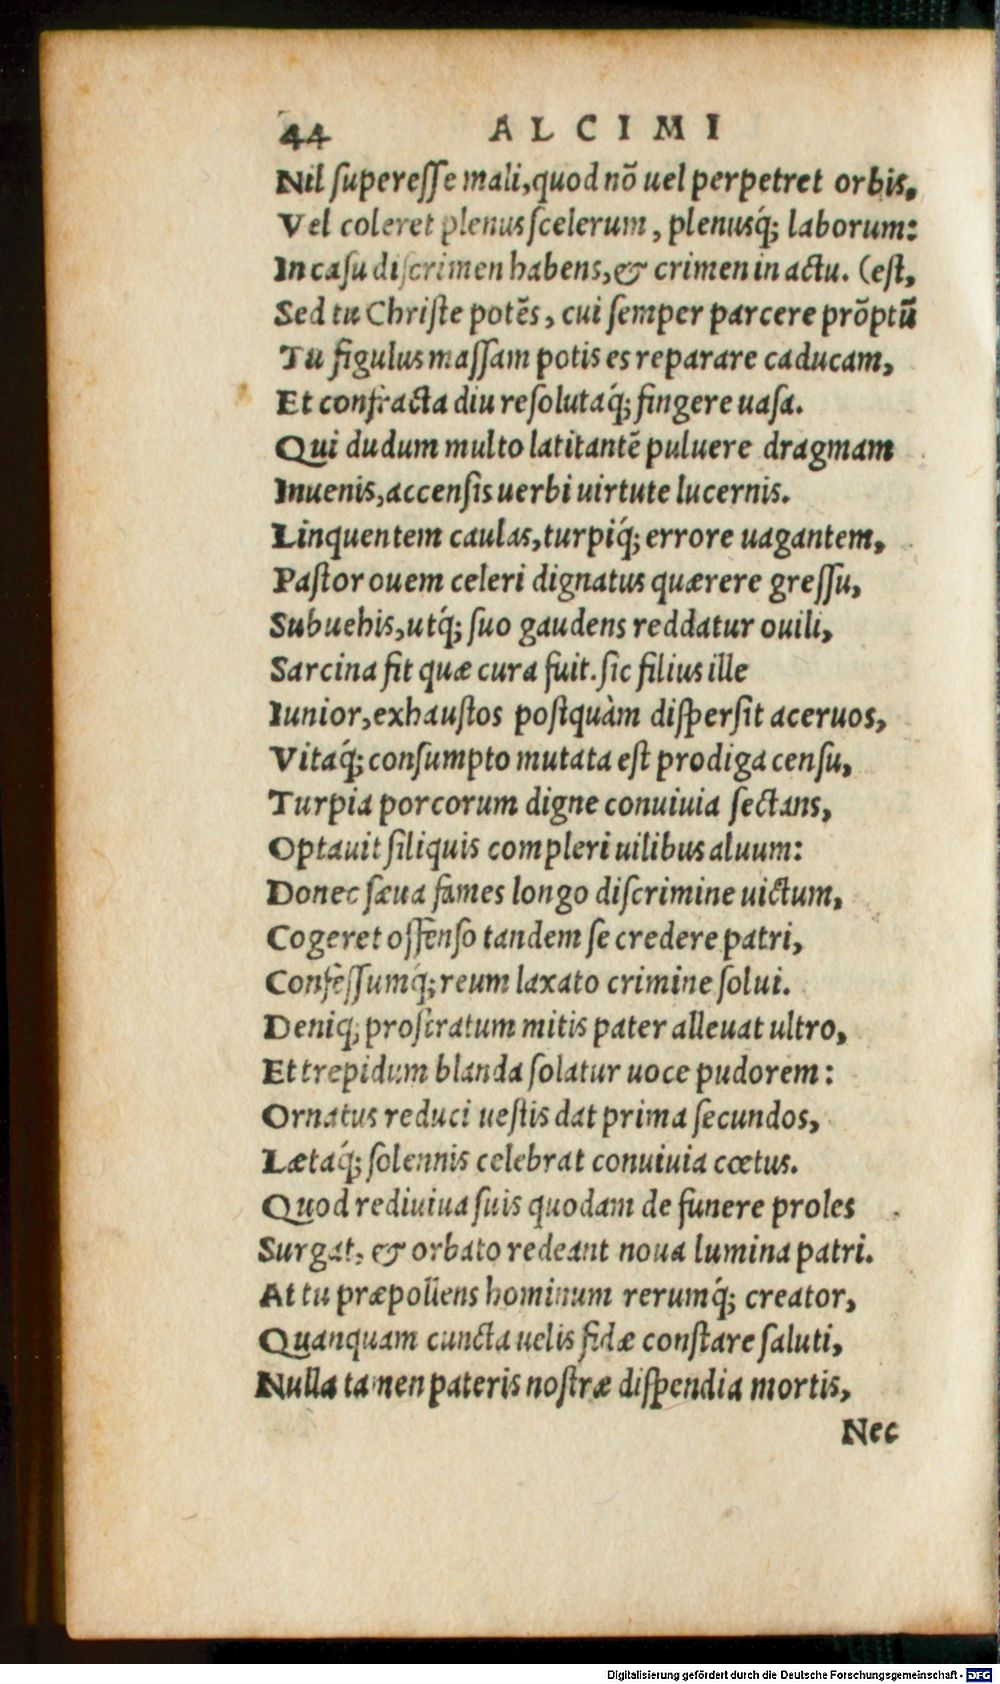 44 ALCIMI
Nil ſupereſſe mali, quod nõ uel perpetret orbis,
Vel coleret plenus ſcelerum, plenusq́; laborum:
In caſu diſcrimen habens, & crimen in actu. (eſt,
Sed tu Chriſte potẽs, cui ſemper parcere prõptũ
Tu figulus maſſam potis es reparare caducam,
Et confracta diu reſolutaq́; fingere uaſa.
Qui dudum multo latitantẽ puluere dragmam
Inuenis, accenſis uerbi uirtute lucernis.
Linquentem caulas, turpiq́; errore uagantem,
Paſtor ouem celeri dignatus quærere greſſu,
Subuehis, utq́; ſuo gaudens reddatur ouili,
Sarcina fit quæ cura fuit. ſic filius ille
Iunior, exhauſtos poſtquàm diſperſit aceruos,
Vitaq́; conſumpto mutata eſt prodiga cenſu,
Turpia porcorum digne conuiuia ſectans,
Optauit ſiliquis compleri uilibus aluum:
Donec ſæua fames longo diſcrimine uictum,
Cogeret offenſo tandem ſe credere patri,
Confeſſumq́; reum laxato crimine ſolui.
Deniq; proſtratum mitis pater alleuat ultro,
Et trepidum blanda ſolatur uoce pudorem:
Ornatus reduci ueſtis dat prima ſecundos,
Lætaq́; ſolennis celebrat conuiuia cœtus.
Quod rediuiua ſuis quodam de funere proles
Surgat, & orbato redeant noua lumina patri.
At tu præpollens hominum rerumq́; creator,
Quanquam cuncta uelis fidæ conſtare ſaluti,
Nulla tamen pateris noſtræ diſpendia mortis,
Nec
Digitalisierung gefördert durch die Deutsche Forschungsgemeinschaft - DFG